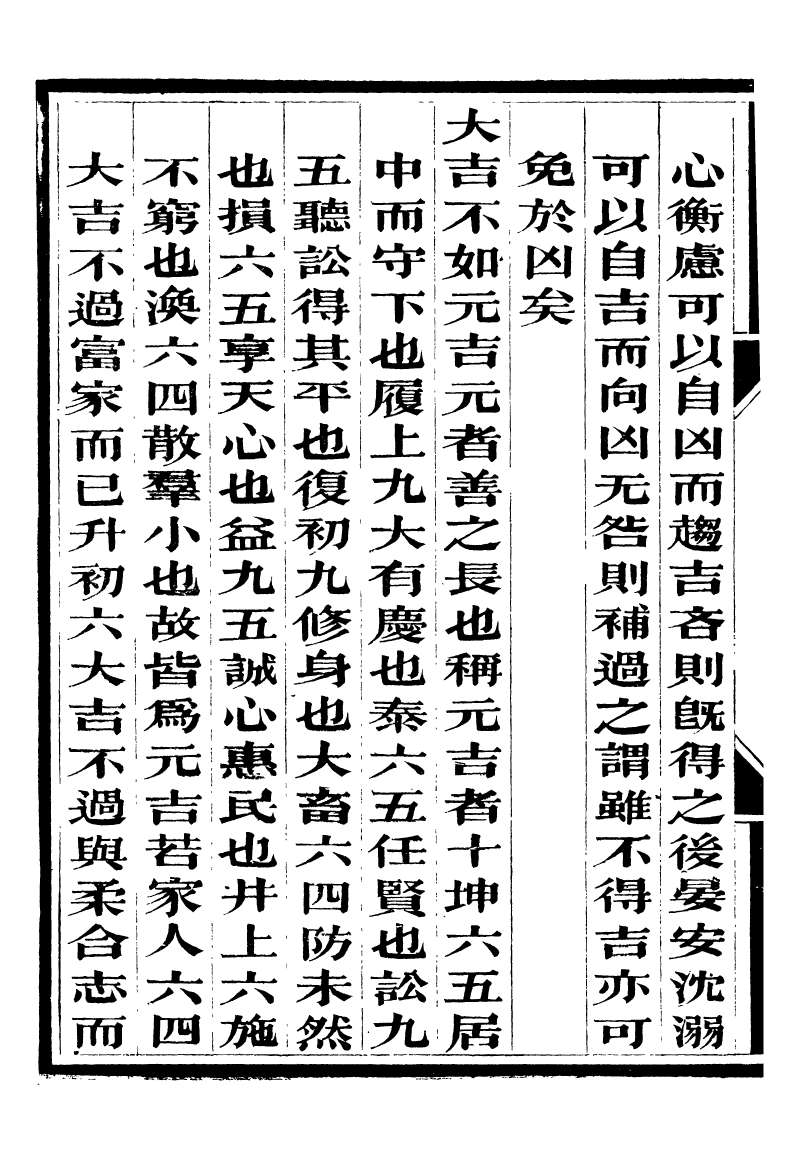 心衡慮可以自凶而趨吉吝則旣得之後晏安沈溺
可以自吉而向凶无咎則補過之謂雖不得吉亦可
免於凶矣
大吉不如元吉元者善之長也稱元吉者十坤六五居
中而守下也履上九大有慶也泰六五任賢也訟九
五聽訟得其平也復初九修身也大畜六四防未然
也損六五享天心也益九五誠心惠民也井上六施
不窮也渙六四散羣小也故皆爲元吉若家人六四
大吉不過富家而已升初六大吉不過與柔合志而